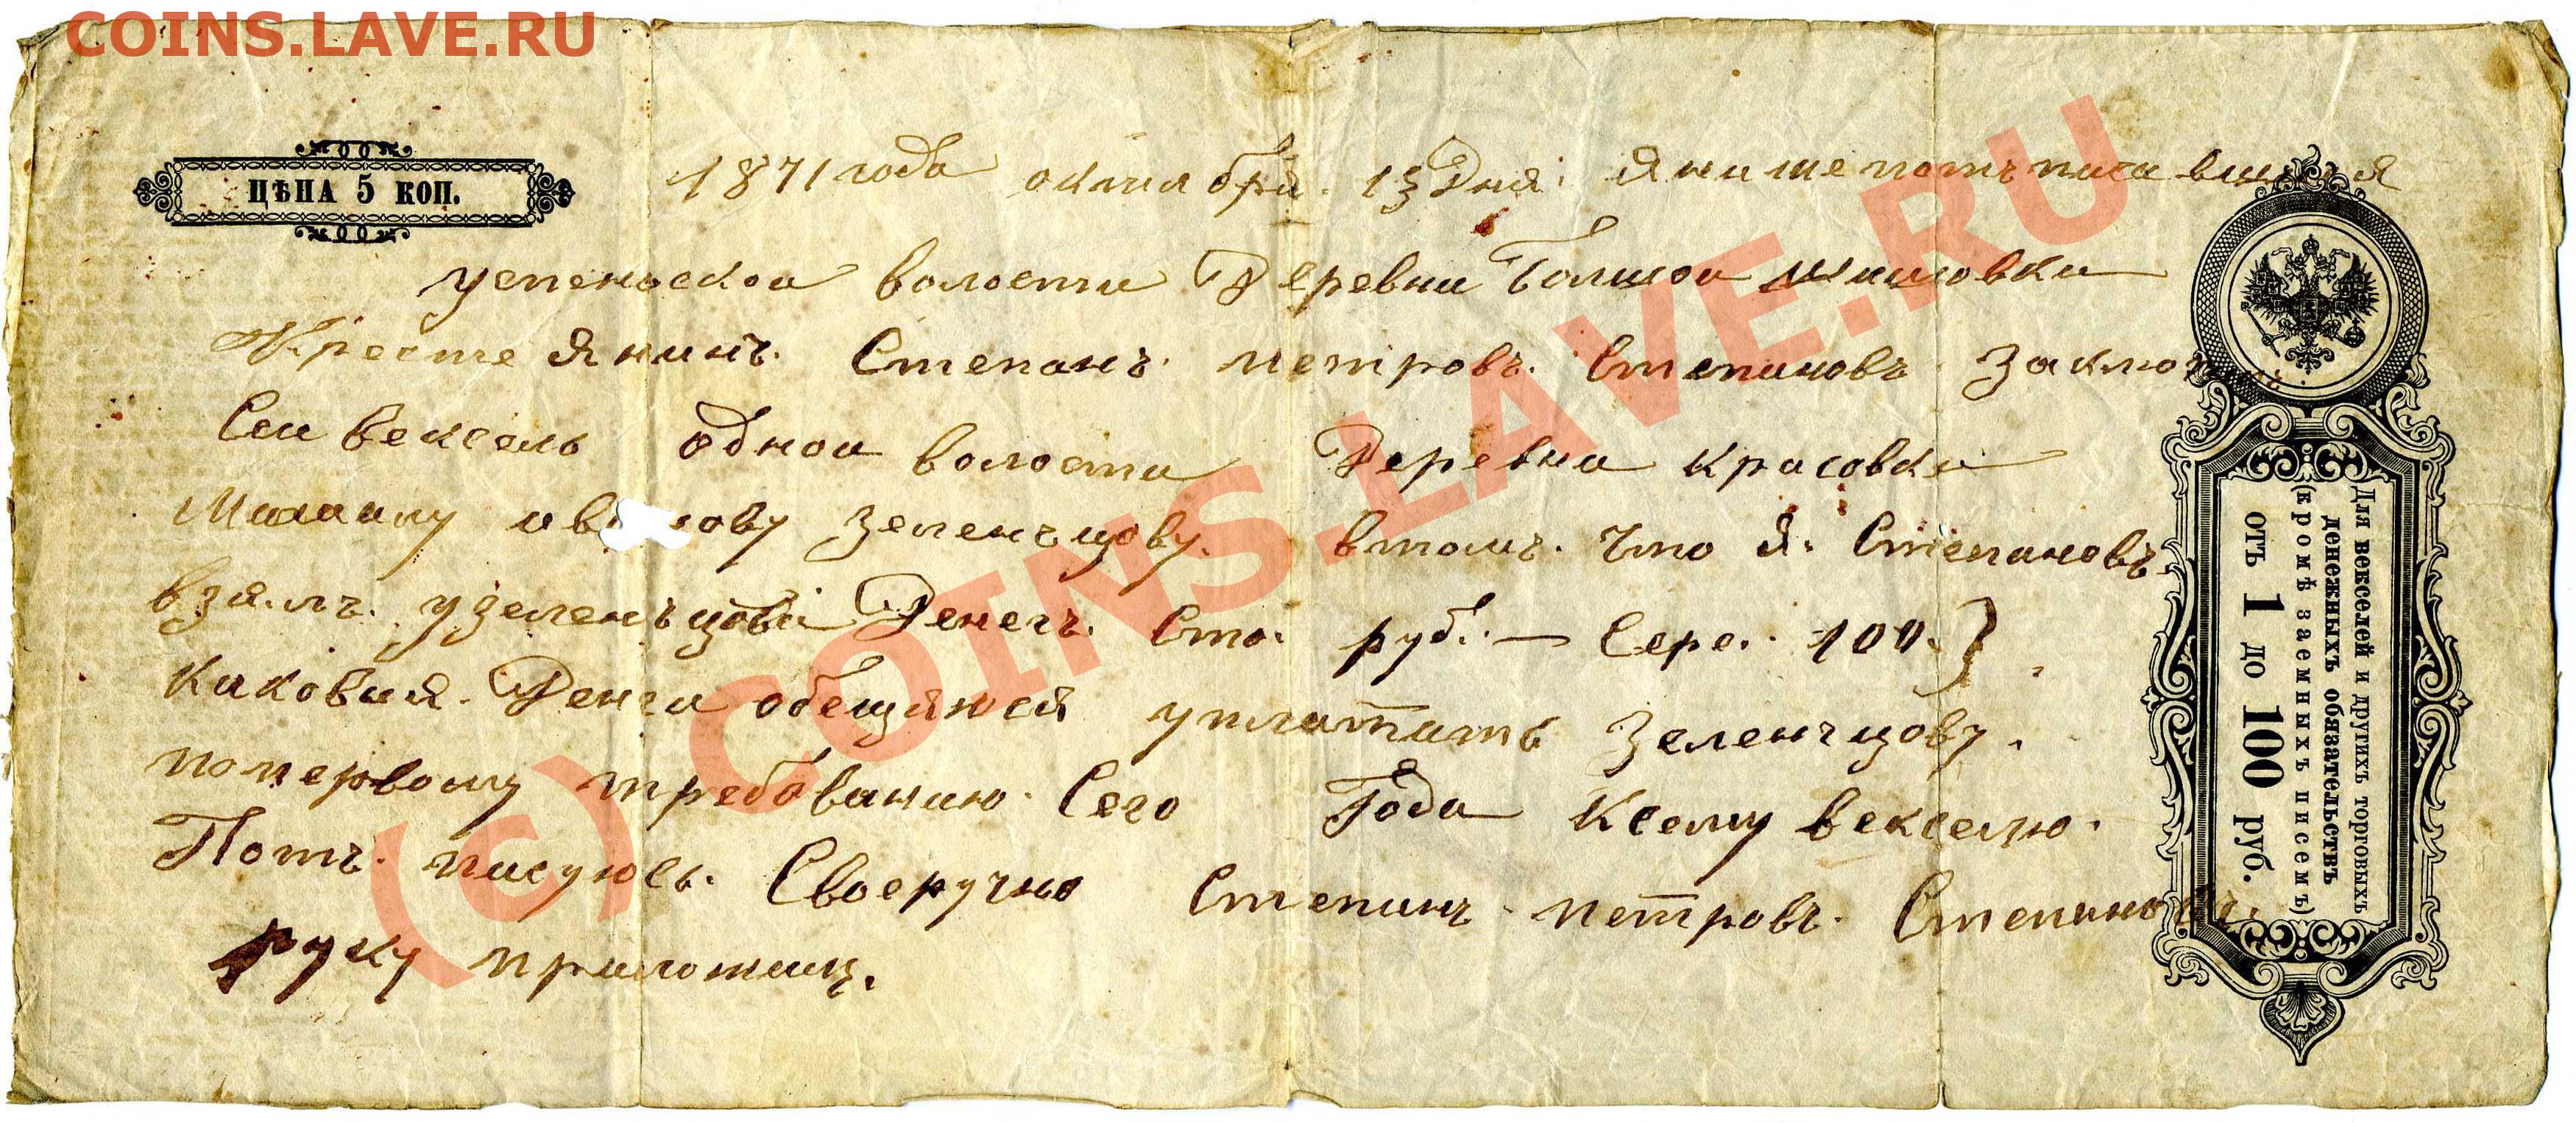 COINS.LAVE.RU
ЦѢНА 5 КОП.
1871 года октября 13 Дня. Я ниже потъписавшися
успеньской волости Деревни Болшои
Крестеянинъ. Степанъ. петровъ. Степановъ Заключилъ.
Сеи вексель однои волости Деревни красовки
ивановУ Зеленъцову. втомъ. что я. Степановъ
взялъ. у Зеленъцова Денегъ. Сто. руб. — Сере. 100.}
каковыя. Денги обещаюся уплатить Зеленъцову.
попервому требованию. Сего Года Ксему векселю.
Потъ. писуюсь. Своеручно Степанъ. петровъ. Степановъ.
руку приложилъ.
Для векселей и другихъ торговыхъ
денежныхъ обязательствъ
(кромѣ заемныхъ писемъ)
отъ 1 до 100 руб.
(c) COINS.LAVE.RU